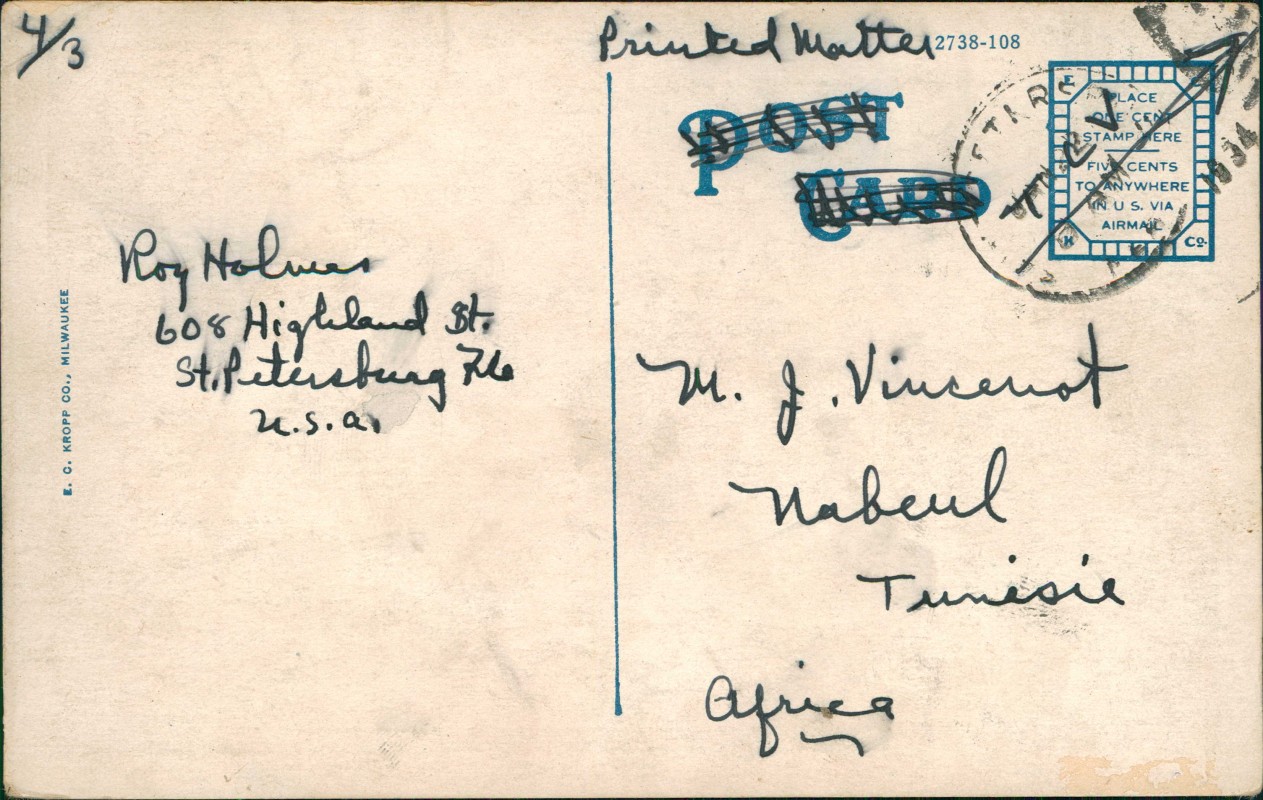 4/3
Printed Matter
2738-108
POST
CARD
E K Co.
PLACE
ONE CENT
STAMP HERE
FIVE CENTS
TO ANYWHERE
IN U S. VIA
AIRMAIL
TCRV
1934
Roy Holmes
608 Highland St.
St. Petersburg Fla
U.S.A.
E. C. KROPP CO., MILWAUKEE
M. J. Vincenot
Nabeul
Tunisie
Africa